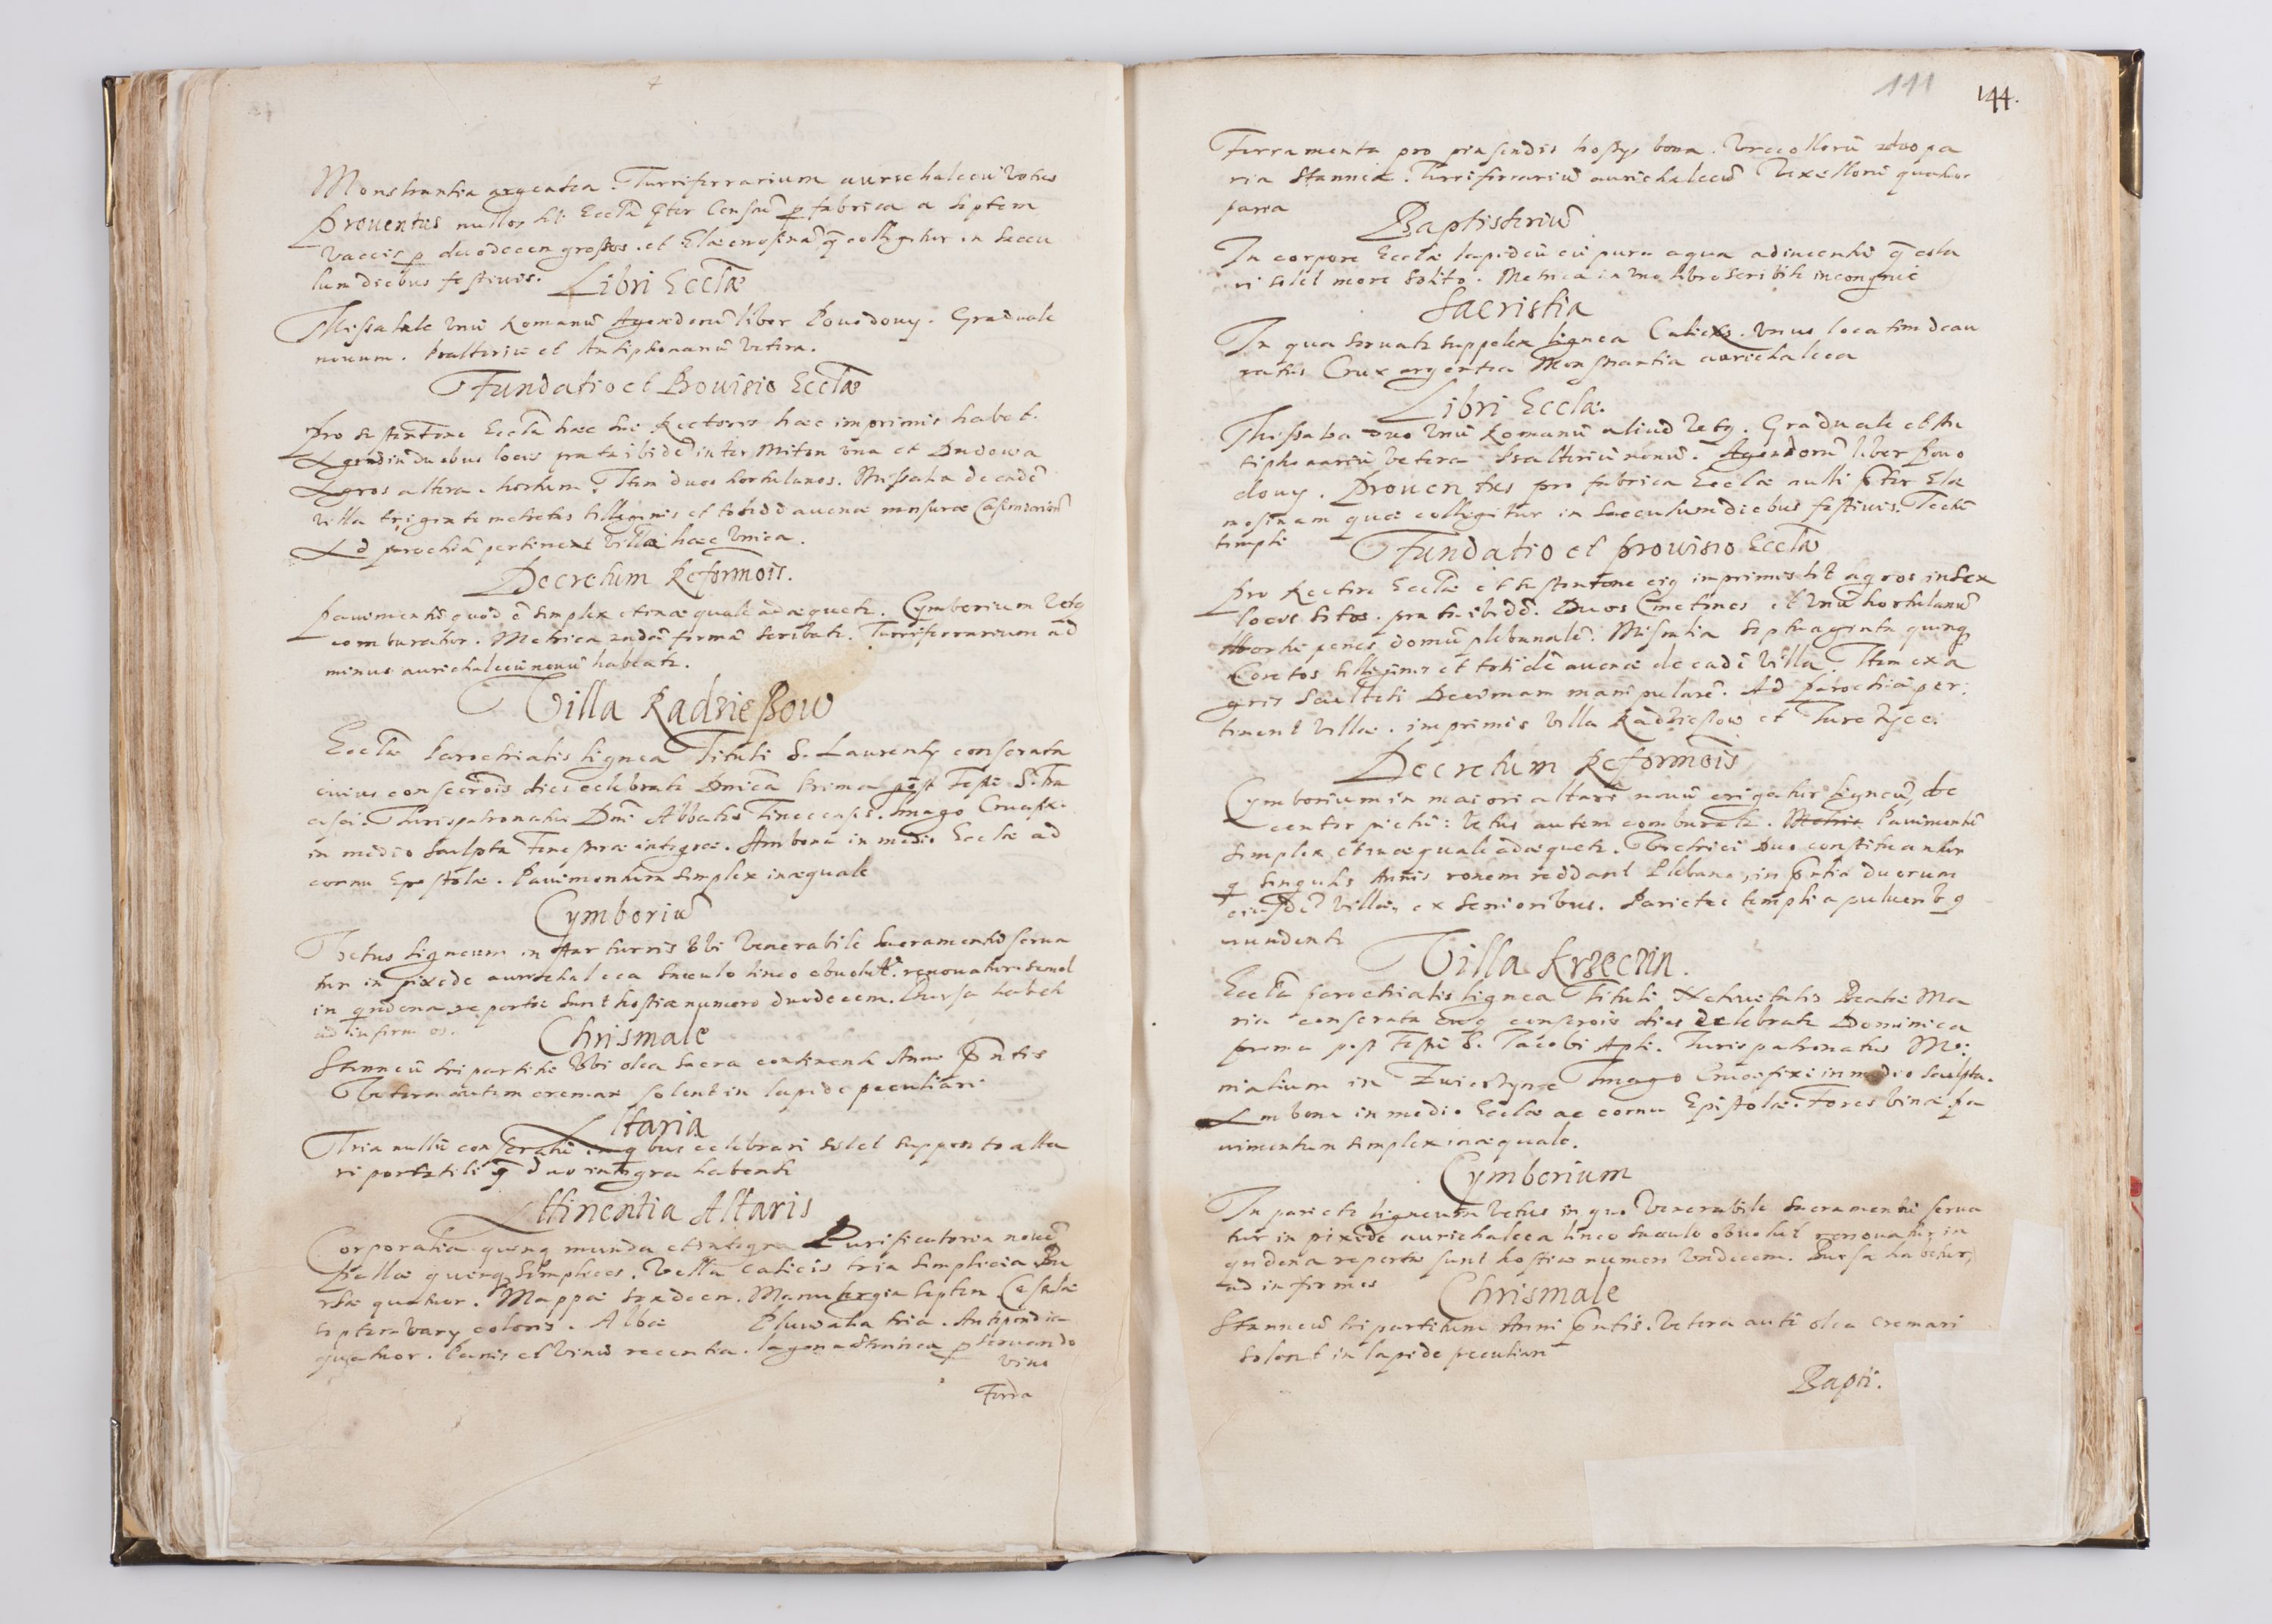 Monstrantia argentea. Turriferrarium aurichalceū vetus
Prouentus nullos ht Eccła pter Censū p fabrica a septem
vaccis p duodecem grossos. et Elæemosinā q̄ colligitur in saccu
lum diebus festiuis.
Libri Eccłæ
Missale vnū Romanū Agendorū liber Pouodouy. Graduale
nouum. Psalteriū et Antiphonariū vetera.
Fundatio et Prouisio Eccłæ
Pro sustentōne Eccła hæc siue Rectoris hæc imprimis habet.
Agros in duobus locis prata ibidē inter Miton vna et Dudowa
Agros altera. hortum. Item duos hortulanos. Missalia de eadē
villa triginta metretas silliginis et totidē auenæ mensuræ Casimirien
Ad parochiā pertinent villæ hæc vnica.
Decretum Reformōis.
Pauimentū quod ē simplex et inæquale adæquetr. Cymborium vetq
comburatur. Metrica eadē formā scribatr. Turriferrarium ad
minus aurichalceū nouū habeatr.
Villa Radzießow
Eccła Parochialis lignea Tituli S. Laurentij conserata
cuius consecrōis dies celebratr Dnica Prima post Festū S. Fra
cisci. Jurispatronatus Dni Abbatis Tinecensis. Imago Crucifix.
in medio sculpta Fenestræ integræ. Ambona in medio Eccłæ ad
cornu Epistolæ. Pauimentum simplex inæquale
Cymboriū
Vetus ligneum instar turris Vbi Venerabile Sacramentū serua
tur in pixede aurichalcea sacculo lineo obuolut. renouatur semel
in qndena repertæ sunt hostiæ numero duodecem. Bursa habetr
ad infirmos.
Chrismale
Stanneū tripartitū Vbi olea sacra continentr Anni pntis
Vetera autem cremari solent in lapide peculiari
Altaria
Tria nullū conseratū in qbus celebrari solet supposito alta
ri portatili q̄ duo integra habentr
Attinentia Altaris
Corporalia quinq munda et integra Purificatoria nouē
Pallæ quinq simplices. Vella calicis tria simplicia Bu
rsæ quatuor. Mappæ sexdecem. Manutergia septem Casulæ
septem varij coloris. Albæ Pluuialia tria. Antipendia
quatuor. Panis et vinū recentia. lagena stannea p seruando
vino
Ferra
111
144.
Ferramenta pro pinsendis hostijs bona. Vrceollorū duo pa
ria Stannea. Turriferrariū aurichalceū Vexellorū quatuor
paria
Baptisteriū
In corpore Eccłæ lapideū cū pura aqua ad incentū q̄ cola
ri solet more solito. Metrica in vno libro scribitr incongruè
Sacristia
In qua seruatr suppelex lignea Calices. vnus locatim deau
ratus Crux argentea Monstrantia aurichalcea
Libri Eccłæ.
Missalia duo vnū Romanū aliud vetq. Graduale et An
tiphonariū vetera Psalteriū nouū. Agendorū liber Pouo
douy. Prouentus pro fabrica Eccłæ nulli pter Elæ
mosinam quæ colligitur in sacculum diebus festiuis. Tectū
templi
Fundatio et prouisio Eccłæ
Pro Rectore Eccłæ et sustentōne eiq imprimis ht agros in sex
locis sitos. prata ibidē. Duos Cmetones et vnū hortulanū
Hortū penes domū plebanalē. Missalia septuaginta quinq
Coretos silliginis et totidē auenæ de eadē villa. Item ex a
gris Sculteti Decimam manipularē. Ad parochiā per.
tinent villæ. imprimis villa Radzießow et Jurczyce.
Decretum Reformōis
Cymborium in maiori altari nouū erigatur ligneū, de
center pictū: vetus autem comburatr. Metric Pauimentū
simplex et inæquale adæquetr. Vietrici Duo constituantur
q singulis Annis ronem reddant Plebano, in pntia duorum
eiusdē villæ, ex senioribus. Parietes templi a puluerib q
mundentr
Villa Krzecin.
Eccła parochialis lignea Tituli Natiuitatis Beatæ Ma
riæ conserata cuiq consecrōis dies celebratr Dominica
prima post Festū S. Jacobi Apti. Jurispatronatus Mo:
nialium in Zwierzynge Imago Crucifixi in medio sculpta.
Ambona in medio Eccłæ ac cornu Epistolæ. Fores binæ pa
uimentum simplex inæquale.
Cymborium
In pariete ligneum vetus in quo Venerabile sacramentū serua
tur in pixede aurichalcea lineo sacculo obuolut renouatur in
qndena repertæ sunt hostiæ numero vndecem. Bursa habetur,
ad infirmos
Chrismale
Stanneū tripartitum Anni pntis. Vetera autē olea cremari
solent in lapide peculiari
Bapti.